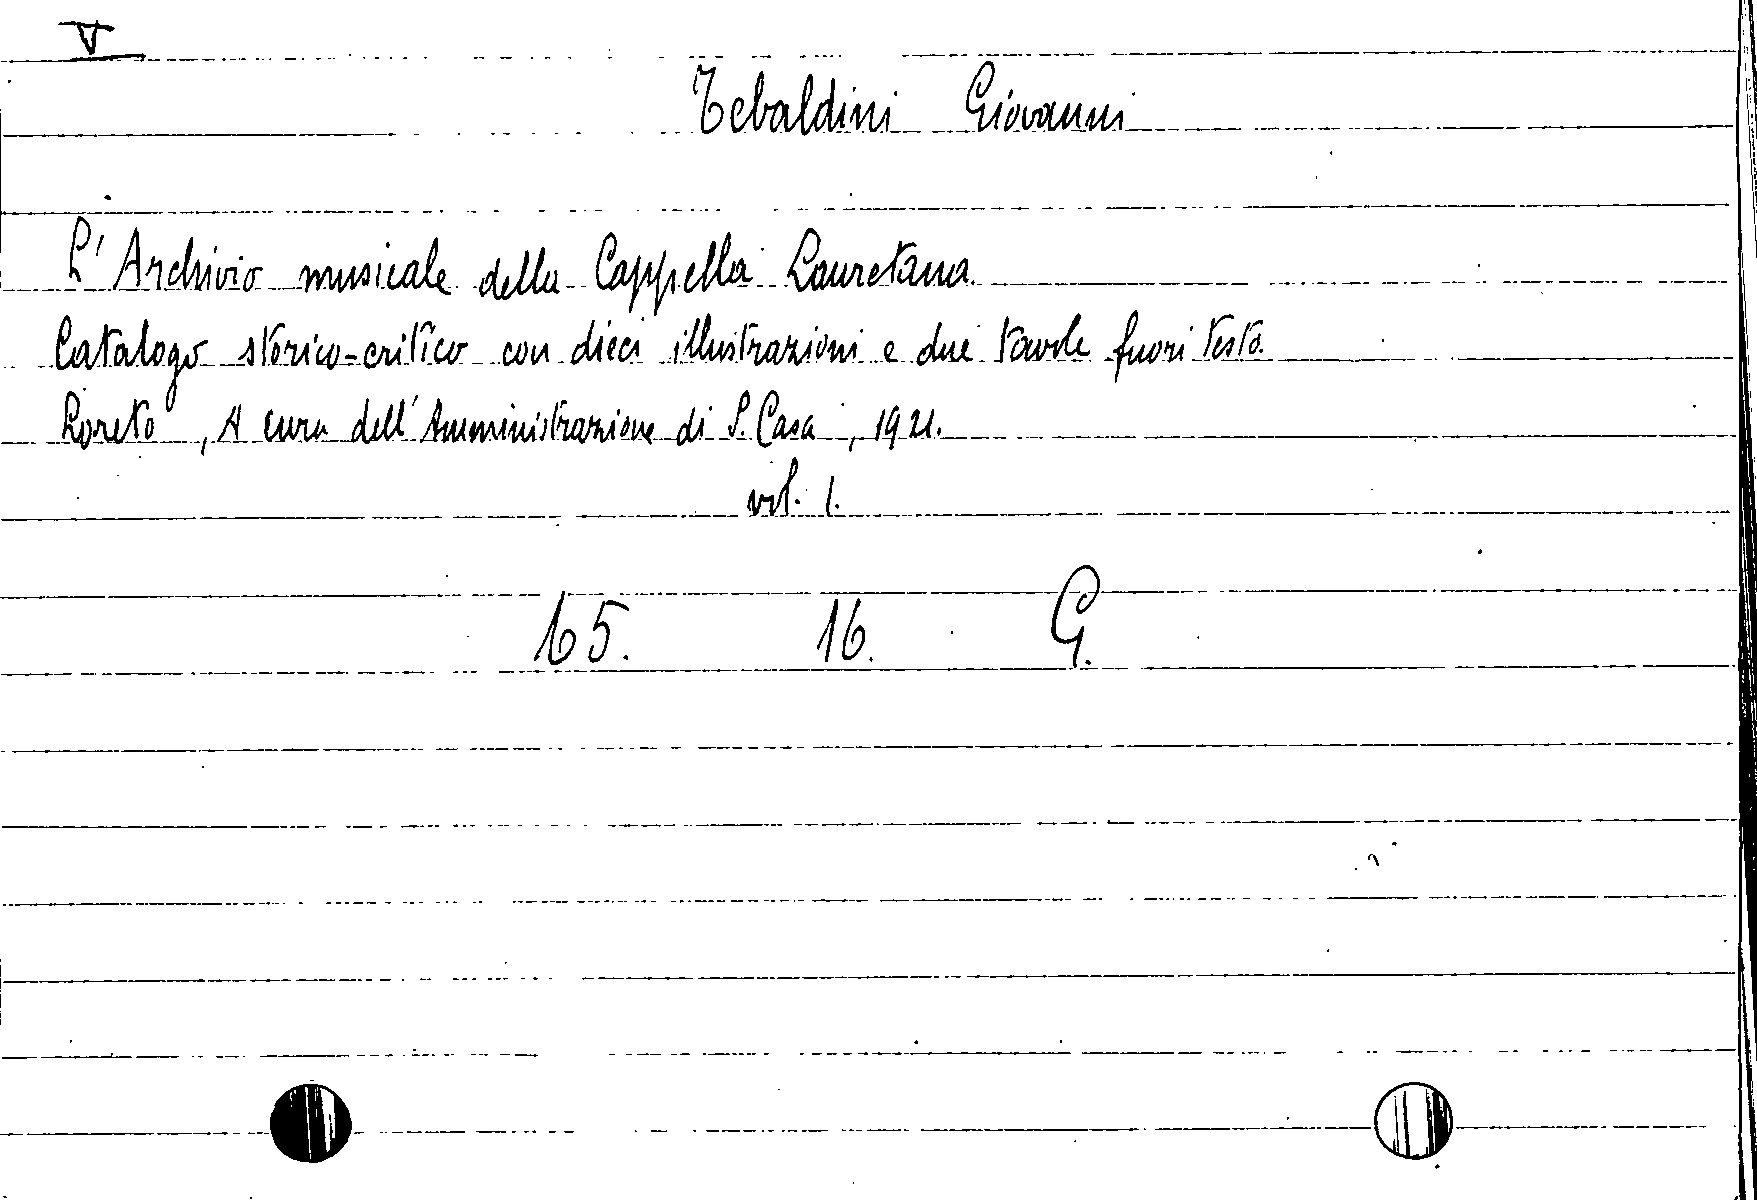 V
Tebaldini Giovanni
L'Archivio musicale della Cappella Lauretana.
Catalogo storico-critico con dieci illustrazioni e due tavole fuori testo.
Loreto, A cura dell'Amministrazione di S. Casa, 1921.
vol. 1.
65. 16. G.